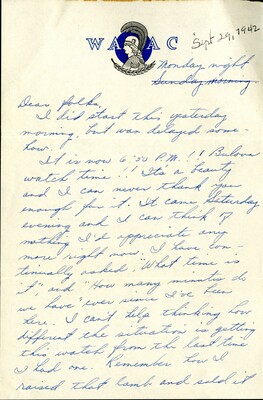 WAAC
Sept 29, 1942
Monday night
Sunday morning.
Dear folks,
I did start this yesterday
morning. But was delayed some-
how.
It is now 6:50 P.M.!! Bulova
watch time!! It's a beauty
and I can never thank you
enough for it. It came Saturday
evening and I can think of
nothing I'd appreciate any
more right now. I have con-
tinually asked, "What time is
it," and "How many minutes do
we have" ever since I've been
here. I can't help thinking how
different the situation is getting
this watch from the last time
I had one. Remember how I
raised that lamb and sold it